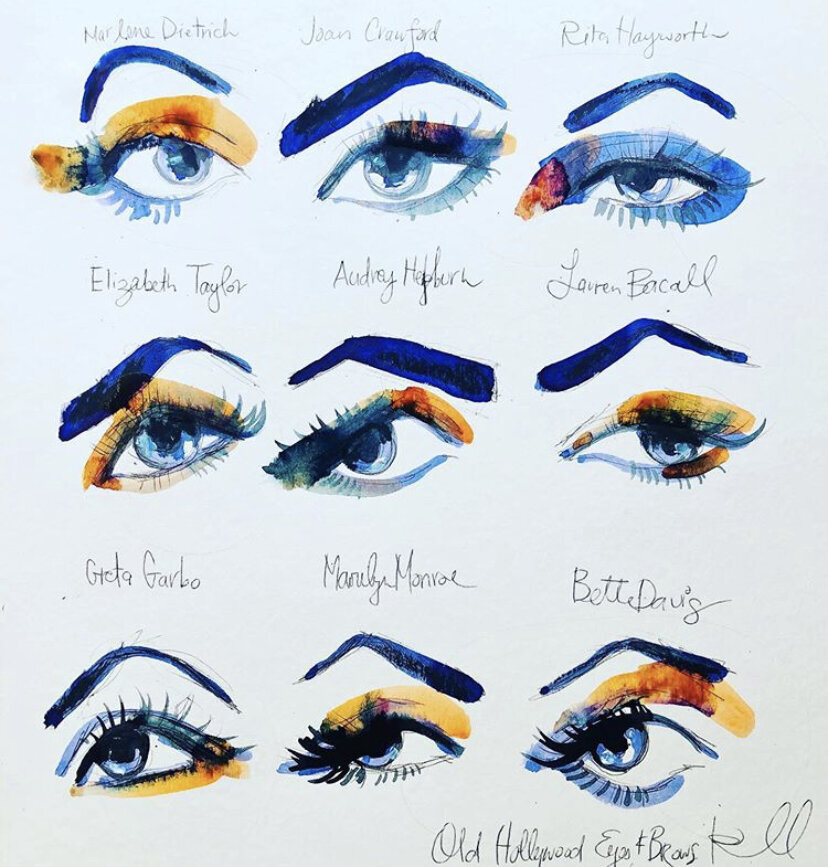 Marlene Dietrich
Joan Crawford
Rita Hayworth
Elizabeth Taylor
Audrey Hepburn
Lauren Bacall
Greta Garbo
Marilyn Monroe
Bette Davis
Old Hollywood Eyes & Brows